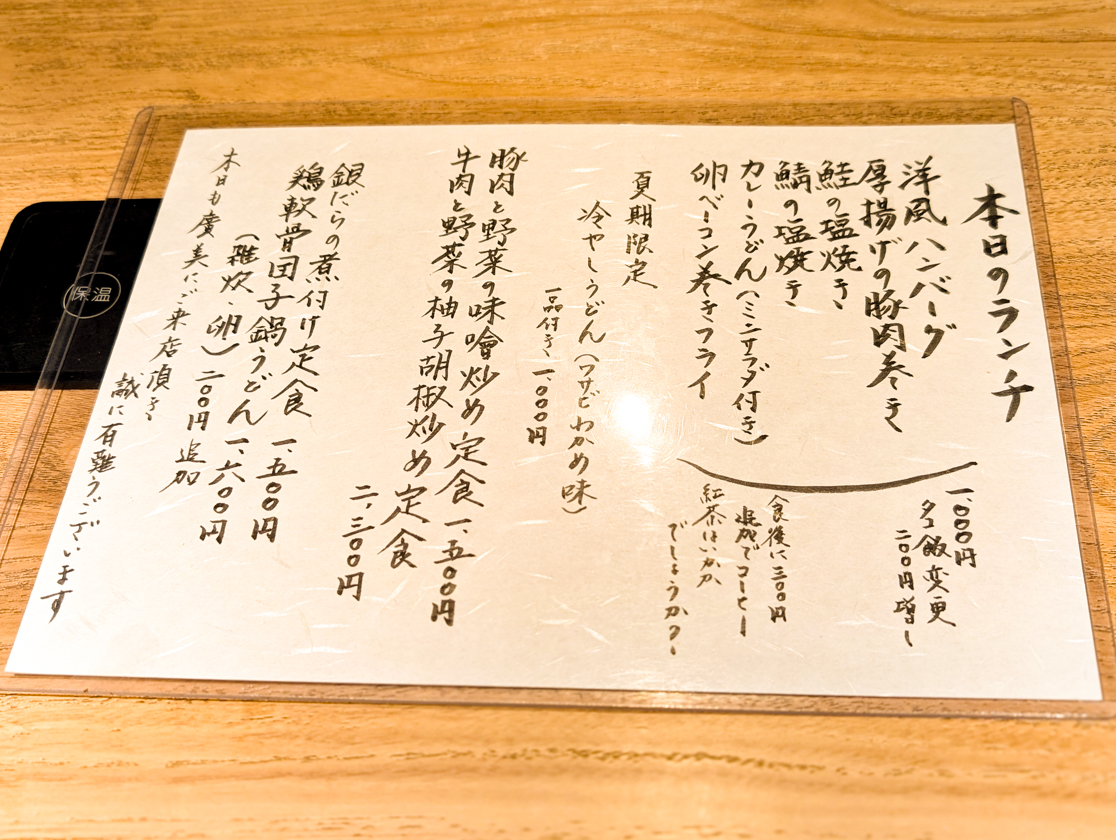 本日のランチ
洋風ハンバーグ
厚揚げの豚肉巻き
鮭の塩焼き
鯖の塩焼き
カレーうどん(ミニサラダ付き)
卵ベーコン巻きフライ
一、〇〇〇円
タコ飯変更
二〇〇円増し
食後に三〇〇円
追加でコーヒー
紅茶はいかが
でしょうか？
夏期限定
冷やしうどん(ワサビわかめ味)
一品付き、一、〇〇〇円
豚肉と野菜の味噌炒め定食 一、五〇〇円
牛肉と野菜の柚子胡椒炒め定食
二、三〇〇円
銀だらの煮付け定食 一、五〇〇円
鶏軟骨団子鍋うどん 一、六〇〇円
(雑炊・卵)二〇〇円追加
本日も廣美にご来店頂き
誠に有難うございます
保温